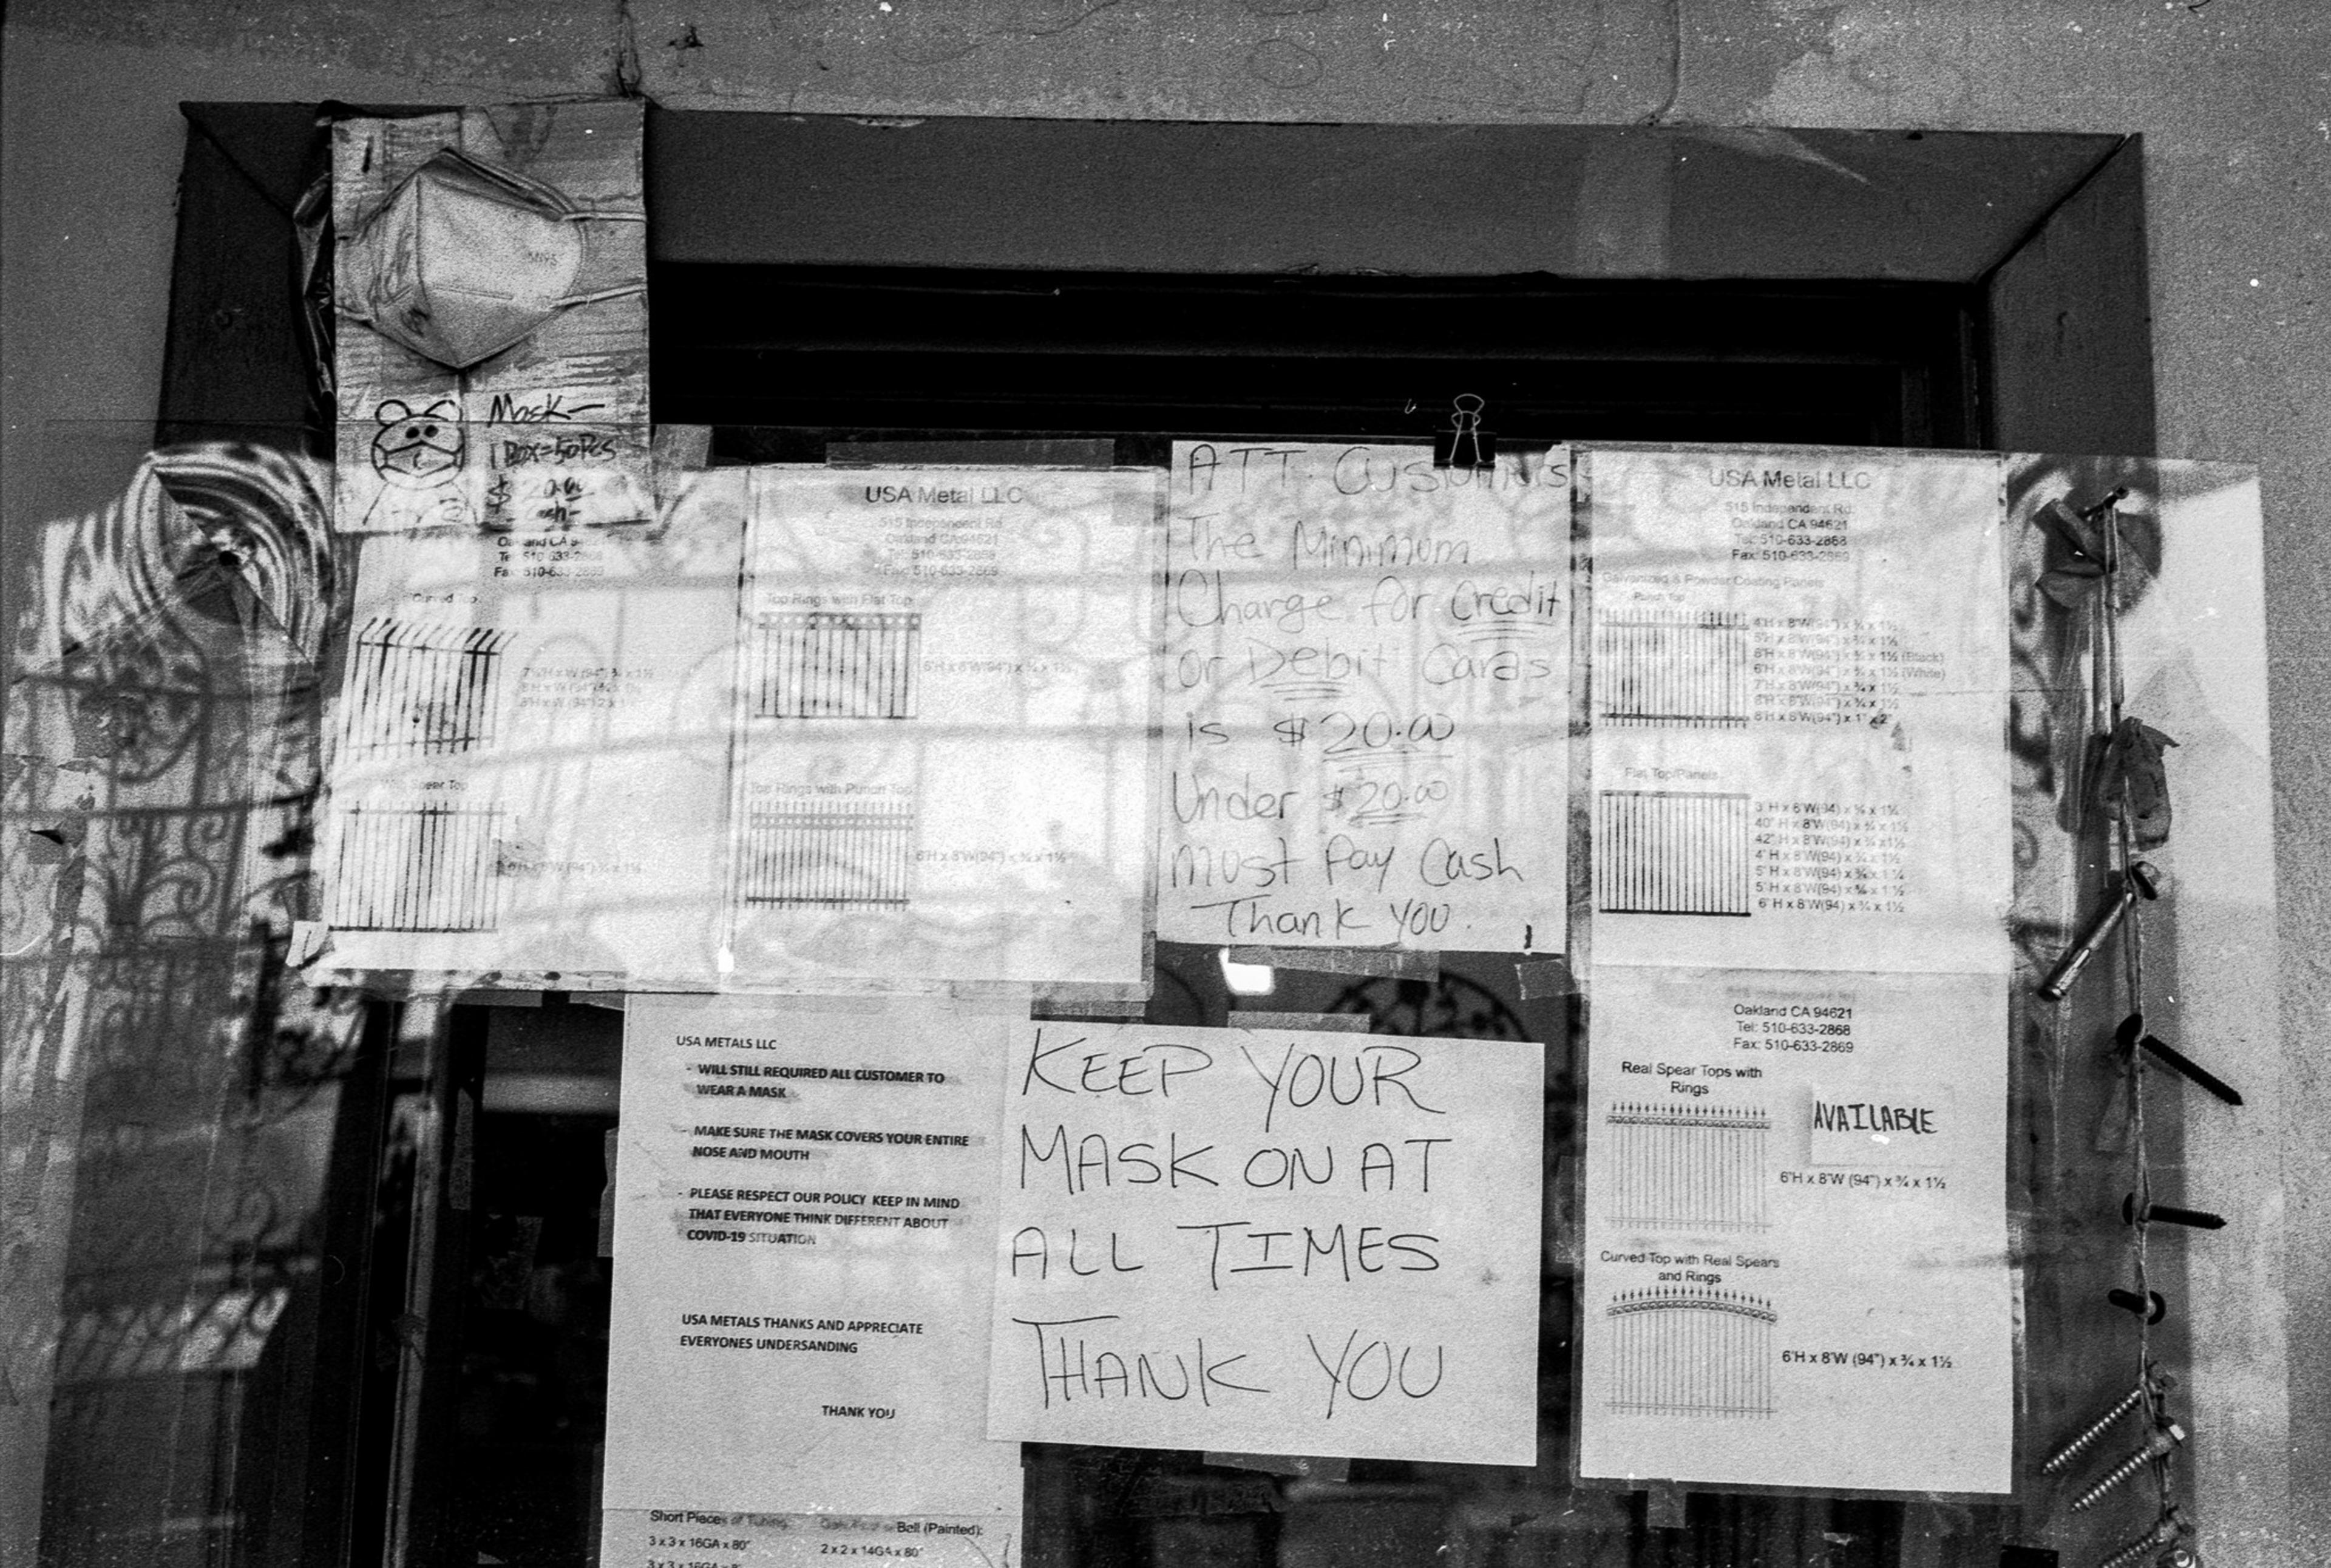 Mask-
1 Box=50Pcs
$20.00
-Cash-
Curved Top
Spear Top
USA Metal LLC
515 Independent Rd
Oakland CA 94621
Tel: 510-633-2868
Fax: 510-633-2869
Top Rings with Flat Top
6'H x 8'W(94") x ¾ x 1½
Top Rings with Punch Top
6'H x 8'W(94") x ¾ x 1½
ATT. Customers
The Minimum
Charge for Credit
or Debit Cards
is $ 20.00
Under $20.00
Must Pay Cash
Thank you.
USA Metal LLC
515 Independent Rd.
Oakland CA 94621
Tel: 510-633-2868
Fax: 510-633-2869
Galvanized & Powder Coating Panels
Punch Top
4'H x 8'W(94") x ¾ x 1½
5'H x 8'W(94") x ¾ x 1½
6'H x 8'W(94") x ¾ x 1½ (Black)
6'H x 8'W(94") x ¾ x 1½ (White)
7'H x 8'W(94") x ¾ x 1½
8'H x 8'W(94") x ¾ x 1½
8'H x 8'W(94") x 1" x 2"
Flat Top/Panels
3' H x 8'W(94) x ¾ x 1½
40" H x 8'W(94) x ¾ x 1½
42" H x 8'W(94) x ¾ x 1½
4' H x 8'W(94) x ¾ x 1½
5' H x 8'W(94) x ¾ x 1½
5' H x 8'W(94) x ¾ x 1½
6' H x 8'W(94) x ¾ x 1½
USA METALS LLC
- WILL STILL REQUIRED ALL CUSTOMER TO
WEAR A MASK
- MAKE SURE THE MASK COVERS YOUR ENTIRE
NOSE AND MOUTH
- PLEASE RESPECT OUR POLICY KEEP IN MIND
THAT EVERYONE THINK DIFFERENT ABOUT
COVID-19 SITUATION
USA METALS THANKS AND APPRECIATE
EVERYONES UNDERSANDING
THANK YOU
KEEP YOUR
MASK ON AT
ALL TIMES
THANK YOU
Oakland CA 94621
Tel: 510-633-2868
Fax: 510-633-2869
Real Spear Tops with
Rings
AVAILABLE
6'H x 8'W (94") x ¾ x 1½
Curved Top with Real Spears
and Rings
6'H x 8'W (94") x ¾ x 1½
Short Pieces of Tubing:
3 x 3 x 16GA x 80"
Ball (Painted):
2 x 2 x 14GA x 80"